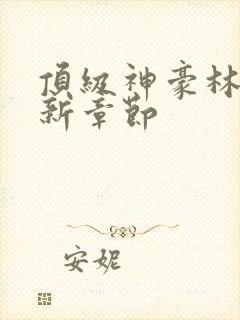 頂級神豪林
新章節
安妮